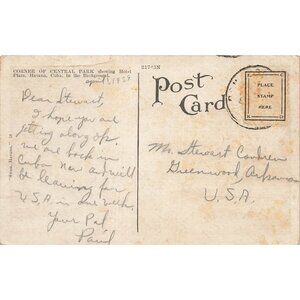 CORNER OF CENTRAL PARK showing Hotel
Plaza, Havana, Cuba, in the Background.
21743N
Post
Card
PLACE
STAMP
HERE
Dear Stewart,
I hope you are
getting along OK.
we are back in
Cuba now and will
be leaving for
U.S.A in one week.
Your Pal
Paul
Mr. Stewart
Greenwood, Arkansas
U.S.A.